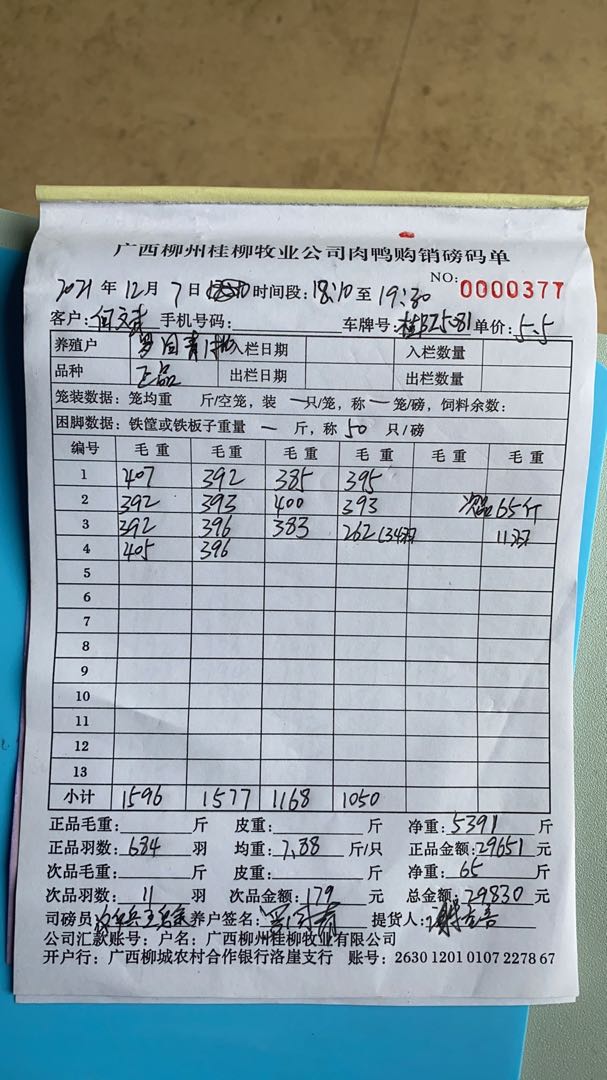 广西柳州桂柳牧业公司肉鸭购销磅码单
NO: 0000377
2021年12月7日 时间段: 18:10至19:30
客户: 何文 手机号码: 车牌号: 桂BZ581 单价: 5.5
养殖户 罗国青 入栏日期 入栏数量
品种 正品 出栏日期 出栏数量
笼装数据: 笼均重 斤/空笼, 装 一只/笼, 称一笼/磅, 饲料余数:
困脚数据: 铁筐或铁板子重量 一 斤, 称50只/磅
编号 毛重 毛重 毛重 毛重 毛重 毛重
1 407 392 385 395
2 392 393 400 393 次品65斤
3 392 396 383 262(34羽 11羽
4 405 396
5
6
7
8
9
10
11
12
13
小计 1596 1577 1168 1050
正品毛重: 斤 皮重: 斤 净重: 5391斤
正品羽数: 684羽 均重: 7.88斤/只 正品金额: 29651元
次品毛重: 斤 皮重: 斤 净重: 65斤
次品羽数: 11羽 次品金额: 179元 总金额: 29830元
司磅员 养户签名: 罗国青 提货人: 谢
公司汇款账号: 户名: 广西柳州桂柳牧业有限公司
开户行: 广西柳城农村合作银行洛崖支行 账号: 2630 1201 0107 2278 67